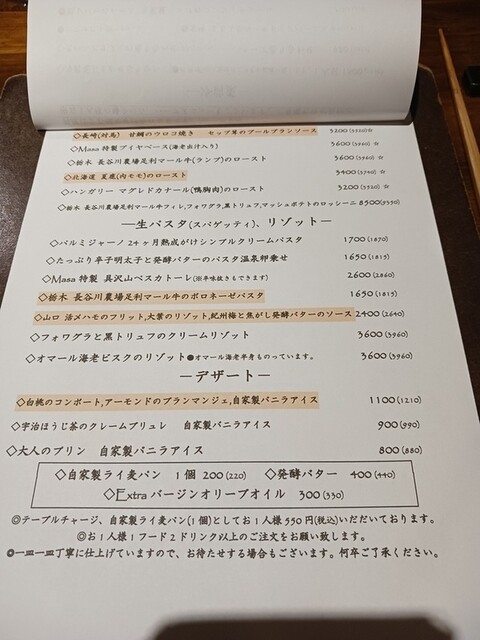 ◇長崎(対馬) 甘鯛のウロコ焼き セップ茸のブールブランソース 3200(3520)☆
◇Masa特製ブイヤベース(海老出汁入り) 3600(3960)☆
◇栃木 長谷川農場足利マール牛(ランプ)のロースト 3600(3960)☆
◇北海道 夏鹿(内モモ)のロースト 3400(3740)☆
◇ハンガリー マグレドカナール(鴨胸肉)のロースト 3200(3520)☆
◇栃木 長谷川農場足利マール牛フィレ,フォワグラ,黒トリュフ,マッシュポテトのロッシーニ 8500(9350)
―生パスタ(スパゲッティ)、リゾット―
◇パルミジャーノ24ヶ月熟成がけシンプルクリームパスタ 1700(1870)
◇たっぷり辛子明太子と発酵バターのパスタ温泉卵乗せ 1650(1815)
◇Masa特製 具沢山ペスカトーレ(※辛味抜きもできます) 2600(2860)
◇栃木 長谷川農場足利マール牛のボロネーゼパスタ 1650(1815)
◇山口 活メハモのフリット,大葉のリゾット,紀州梅と焦がし発酵バターのソース 2400(2640)
◇フォワグラと黒トリュフのクリームリゾット 3600(3960)
◇オマール海老ビスクのリゾット●オマール海老半身ものっています。 3600(3960)
―デザート―
◇白桃のコンポート,アーモンドのブランマンジェ,自家製バニラアイス 1100(1210)
◇宇治ほうじ茶のクレームブリュレ 自家製バニラアイス 900(990)
◇大人のプリン 自家製バニラアイス 800(880)
◇自家製ライ麦パン 1個 200(220) ◇発酵バター 400(440)
◇Extra バージンオリーブオイル 300(330)
◎テーブルチャージ、自家製ライ麦パン(1個)としてお1人様550円(税込)いただいております。
◎お1人様1フード2ドリンク以上のご注文をお願い致します。
◎一皿一皿丁寧に仕上げていますので、お待たせする場合もございます。何卒ご了承ください。